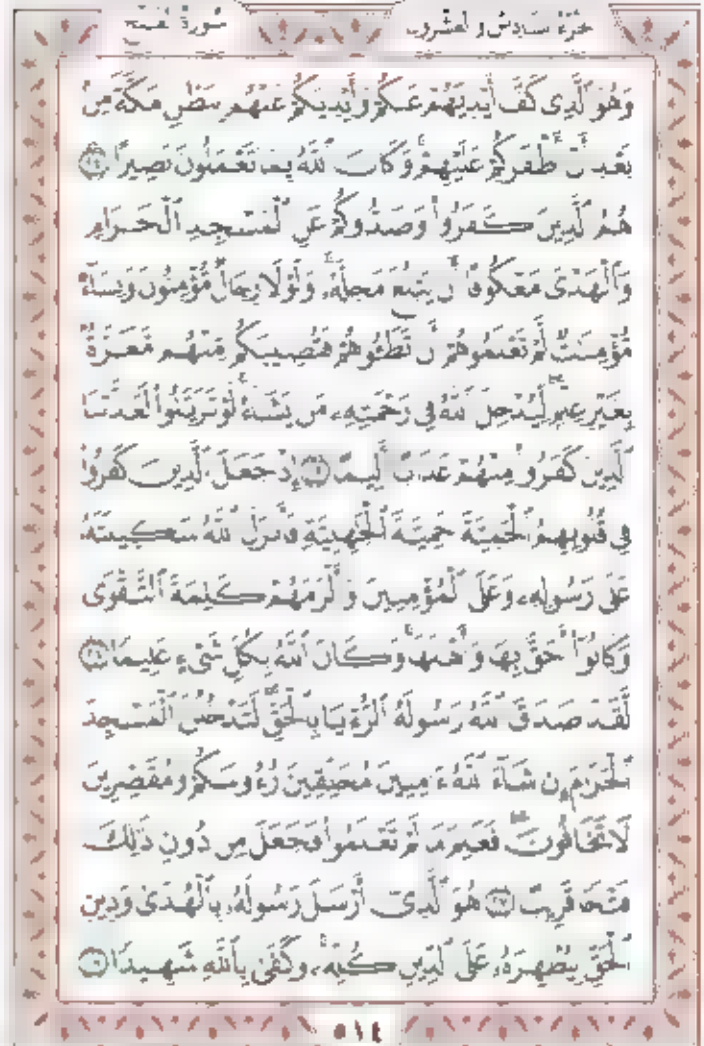 سورة الفتح
الجزء السادس والعشرون
وَهُوَ ٱلَّذِى كَفَّ أَيْدِيَهُمْ عَنكُمْ وَأَيْدِيَكُمْ عَنْهُم بِبَطْنِ مَكَّةَ مِنۢ
بَعْدِ أَنْ أَظْفَرَكُمْ عَلَيْهِمْ ۚ وَكَانَ ٱللَّهُ بِمَا تَعْمَلُونَ بَصِيرًا ٢٤
هُمُ ٱلَّذِينَ كَفَرُوا۟ وَصَدُّوكُمْ عَنِ ٱلْمَسْجِدِ ٱلْحَرَامِ
وَٱلْهَدْىَ مَعْكُوفًا أَن يَبْلُغَ مَحِلَّهُۥ ۚ وَلَوْلَا رِجَالٌ مُّؤْمِنُونَ وَنِسَآءٌ
مُّؤْمِنَـٰتٌ لَّمْ تَعْلَمُوهُمْ أَن تَطَـُٔوهُمْ فَتُصِيبَكُم مِّنْهُم مَّعَرَّةٌۢ
بِغَيْرِ عِلْمٍ ۖ لِّيُدْخِلَ ٱللَّهُ فِى رَحْمَتِهِۦ مَن يَشَآءُ ۚ لَوْ تَزَيَّلُوا۟ لَعَذَّبْنَا
ٱلَّذِينَ كَفَرُوا۟ مِنْهُمْ عَذَابًا أَلِيمًا ٢٥ إِذْ جَعَلَ ٱلَّذِينَ كَفَرُوا۟
فِى قُلُوبِهِمُ ٱلْحَمِيَّةَ حَمِيَّةَ ٱلْجَـٰهِلِيَّةِ فَأَنزَلَ ٱللَّهُ سَكِينَتَهُۥ
عَلَىٰ رَسُولِهِۦ وَعَلَى ٱلْمُؤْمِنِينَ وَأَلْزَمَهُمْ كَلِمَةَ ٱلتَّقْوَىٰ
وَكَانُوٓا۟ أَحَقَّ بِهَا وَأَهْلَهَا ۚ وَكَانَ ٱللَّهُ بِكُلِّ شَىْءٍ عَلِيمًا ٢٦
لَّقَدْ صَدَقَ ٱللَّهُ رَسُولَهُ ٱلرُّءْيَا بِٱلْحَقِّ ۖ لَتَدْخُلُنَّ ٱلْمَسْجِدَ
ٱلْحَرَامَ إِن شَآءَ ٱللَّهُ ءَامِنِينَ مُحَلِّقِينَ رُءُوسَكُمْ وَمُقَصِّرِينَ
لَا تَخَافُونَ ۖ فَعَلِمَ مَا لَمْ تَعْلَمُوا۟ فَجَعَلَ مِن دُونِ ذَٰلِكَ
فَتْحًا قَرِيبًا ٢٧ هُوَ ٱلَّذِىٓ أَرْسَلَ رَسُولَهُۥ بِٱلْهُدَىٰ وَدِينِ
ٱلْحَقِّ لِيُظْهِرَهُۥ عَلَى ٱلدِّينِ كُلِّهِۦ ۚ وَكَفَىٰ بِٱللَّهِ شَهِيدًا ٢٨
٥١٤